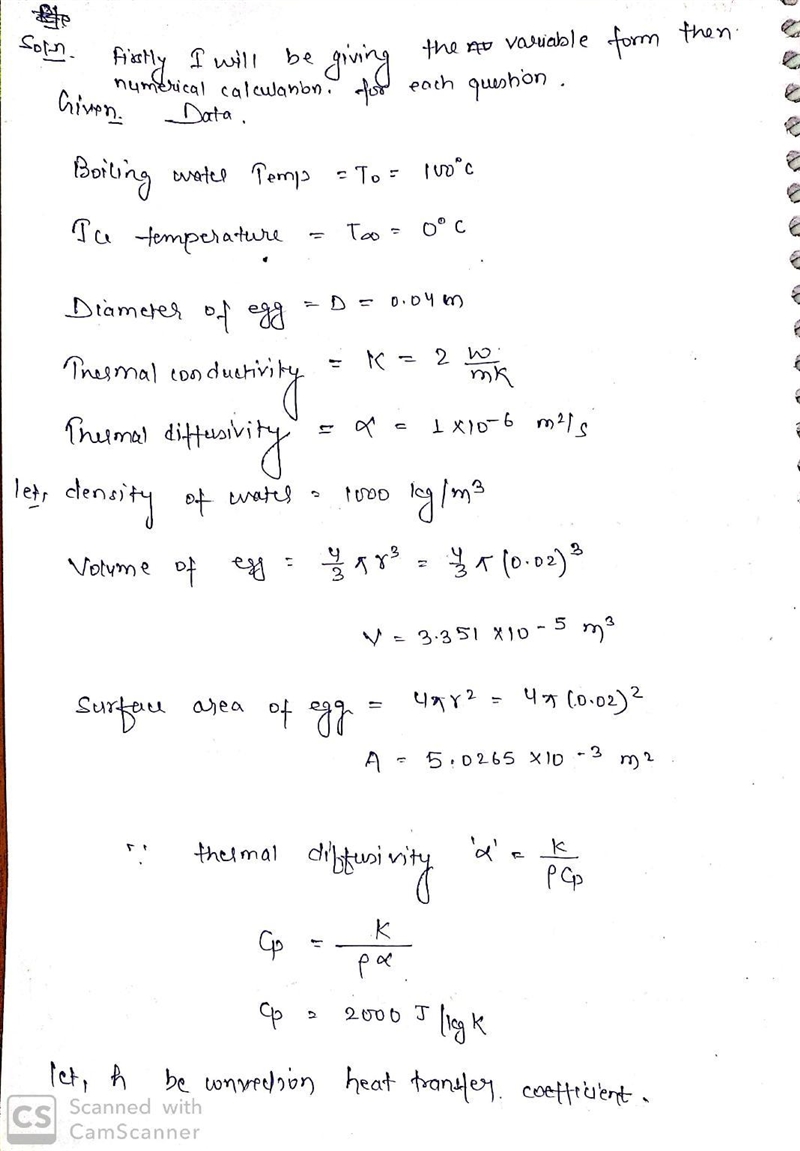 Soln. firstly I will be giving the variable form then
numerical calculation. for each question.
Given. Data.
Boiling water Temp = T0 = 100°C
Ice temperature = T∞ = 0°C
Diameter of egg = D = 0.04 m
Thermal conductivity = K = 2 W/mK
Thermal diffusivity = α = 1×10-6 m²/s
let, density of water = 1000 kg/m³
Volume of egg = 4/3 πr³ = 4/3 π (0.02)³
V = 3.351 ×10-5 m³
Surface area of egg = 4πr² = 4π (0.02)²
A = 5.0265 ×10-3 m²
∵ thermal diffusivity 'α' = K/ρCp
Cp = K/ρα
Cp = 2000 J/kg K
let, h be convection heat transfer. coefficient.
CS Scanned with
CamScanner